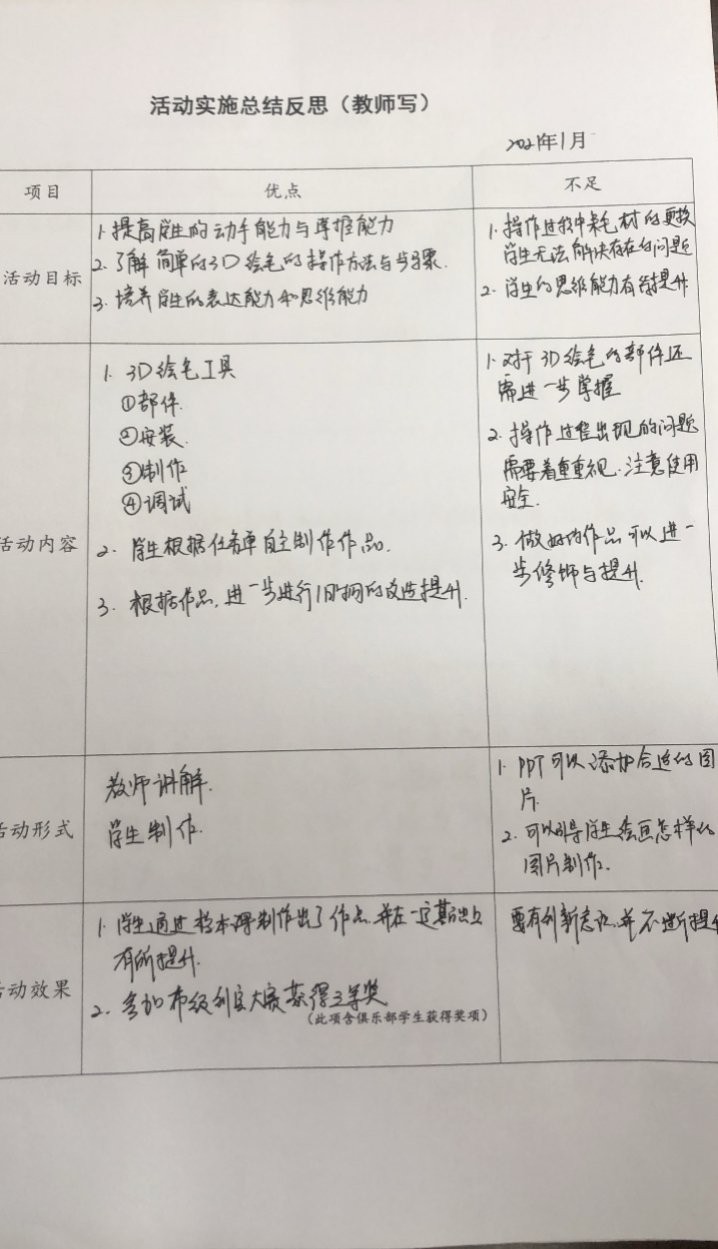 活动实施总结反思（教师写）
2021年1月
项目
优点
不足
活动目标
1. 提高学生的动手能力与掌握能力
2. 了解简单的3D绘笔的操作方法与步骤.
3. 培养学生的表达能力和思维能力
1. 操作过程中耗材的更换
学生无法解决存在的问题
2. 学生的思维能力有待提升
活动内容
1. 3D绘笔工具
①部件.
②安装.
③制作
④调试
2. 学生根据任务单自主制作作品.
3. 根据作品,进一步进行旧物的改造提升.
1. 对于3D绘笔的部件还
需进一步掌握
2. 操作过程出现的问题
需要着重重视.注意使用
安全.
3. 做好的作品可以进一
步修饰与提升.
活动形式
教师讲解.
学生制作.
1. PPT可以添加合适的图
片.
2. 可以引导学生绘画怎样的
图片制作.
活动效果
1. 学生通过校本课制作出了作品.并在一定基础上
有所提升.
2. 参加市级创客大赛获得三等奖
（此项含俱乐部学生获得奖项）
要有创新意识.并不断提